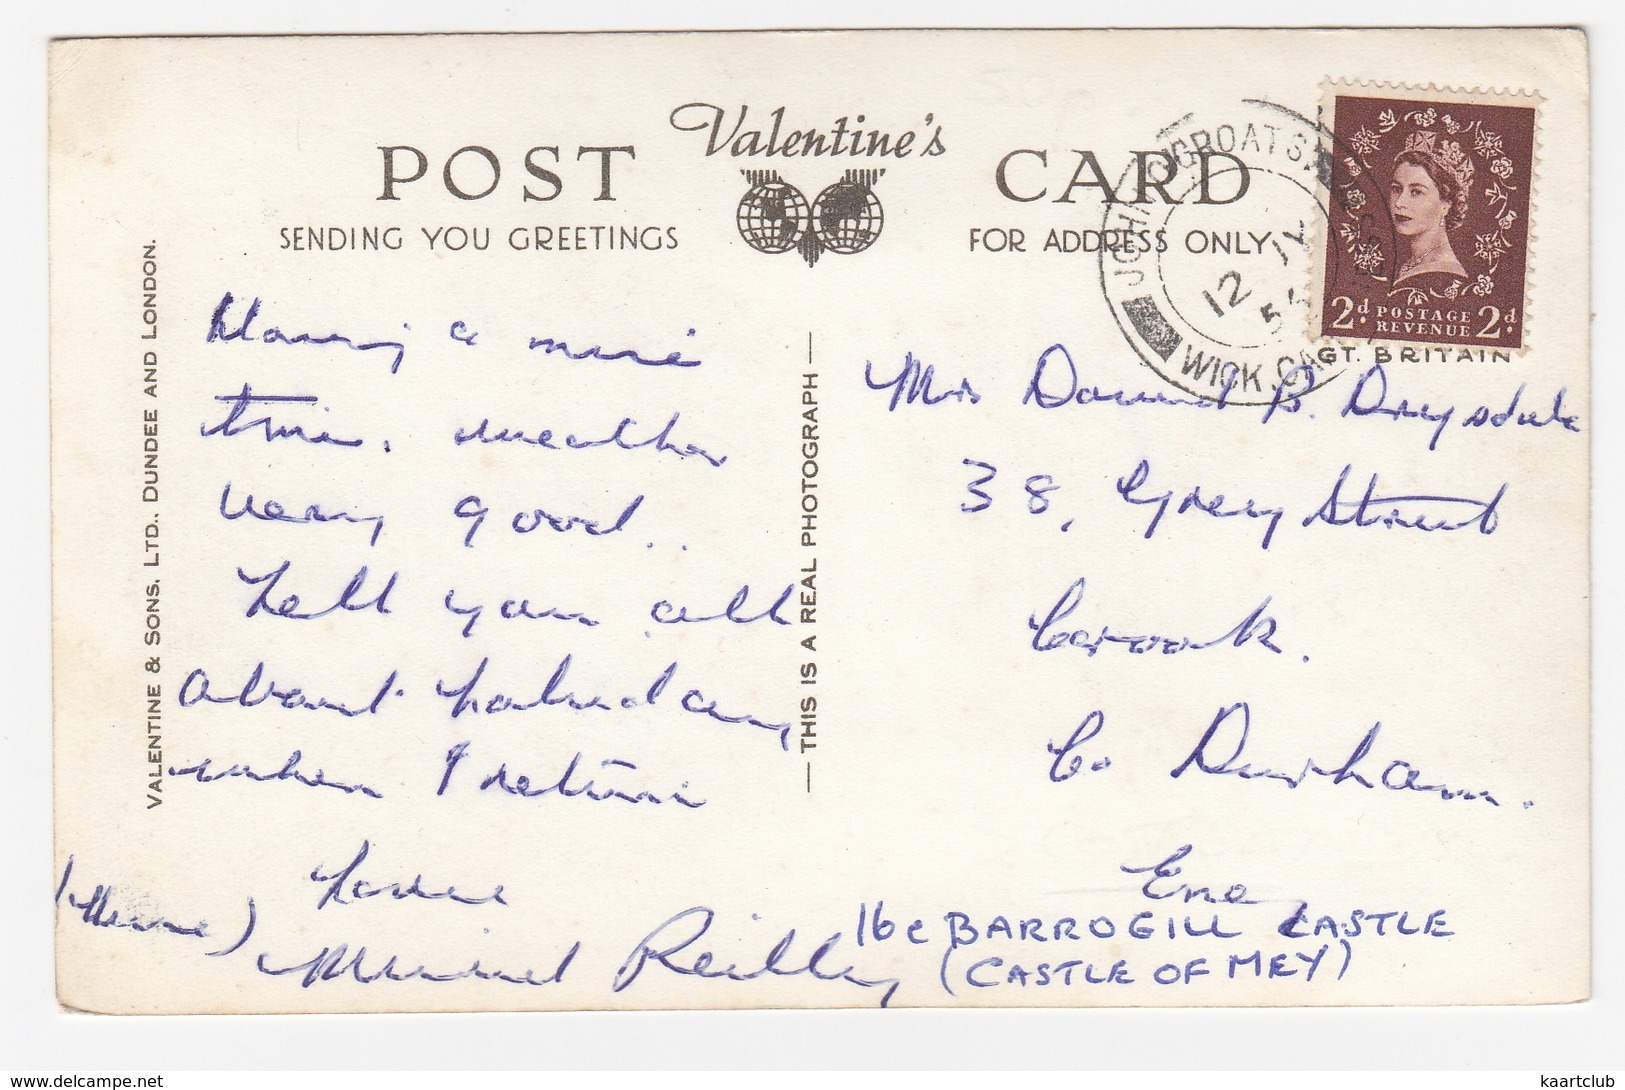 Valentine's
POST CARD
SENDING YOU GREETINGS
FOR ADDRESS ONLY
JOHN O'GROATS
12 JL
56
WICK, CA
2d POSTAGE REVENUE 2d
GT. BRITAIN
VALENTINE & SONS, LTD., DUNDEE AND LONDON.
— THIS IS A REAL PHOTOGRAPH —
Having a nice
time. weather
very good..
Tell you all
about holiday
when I return
Love
Reilly
Mrs David B. Drysdale
38, Grey Street
Crook.
Co Durham.
Eng
16c BARROGILL CASTLE
(CASTLE OF MEY)
http://www.delcampe.net
kaartclub